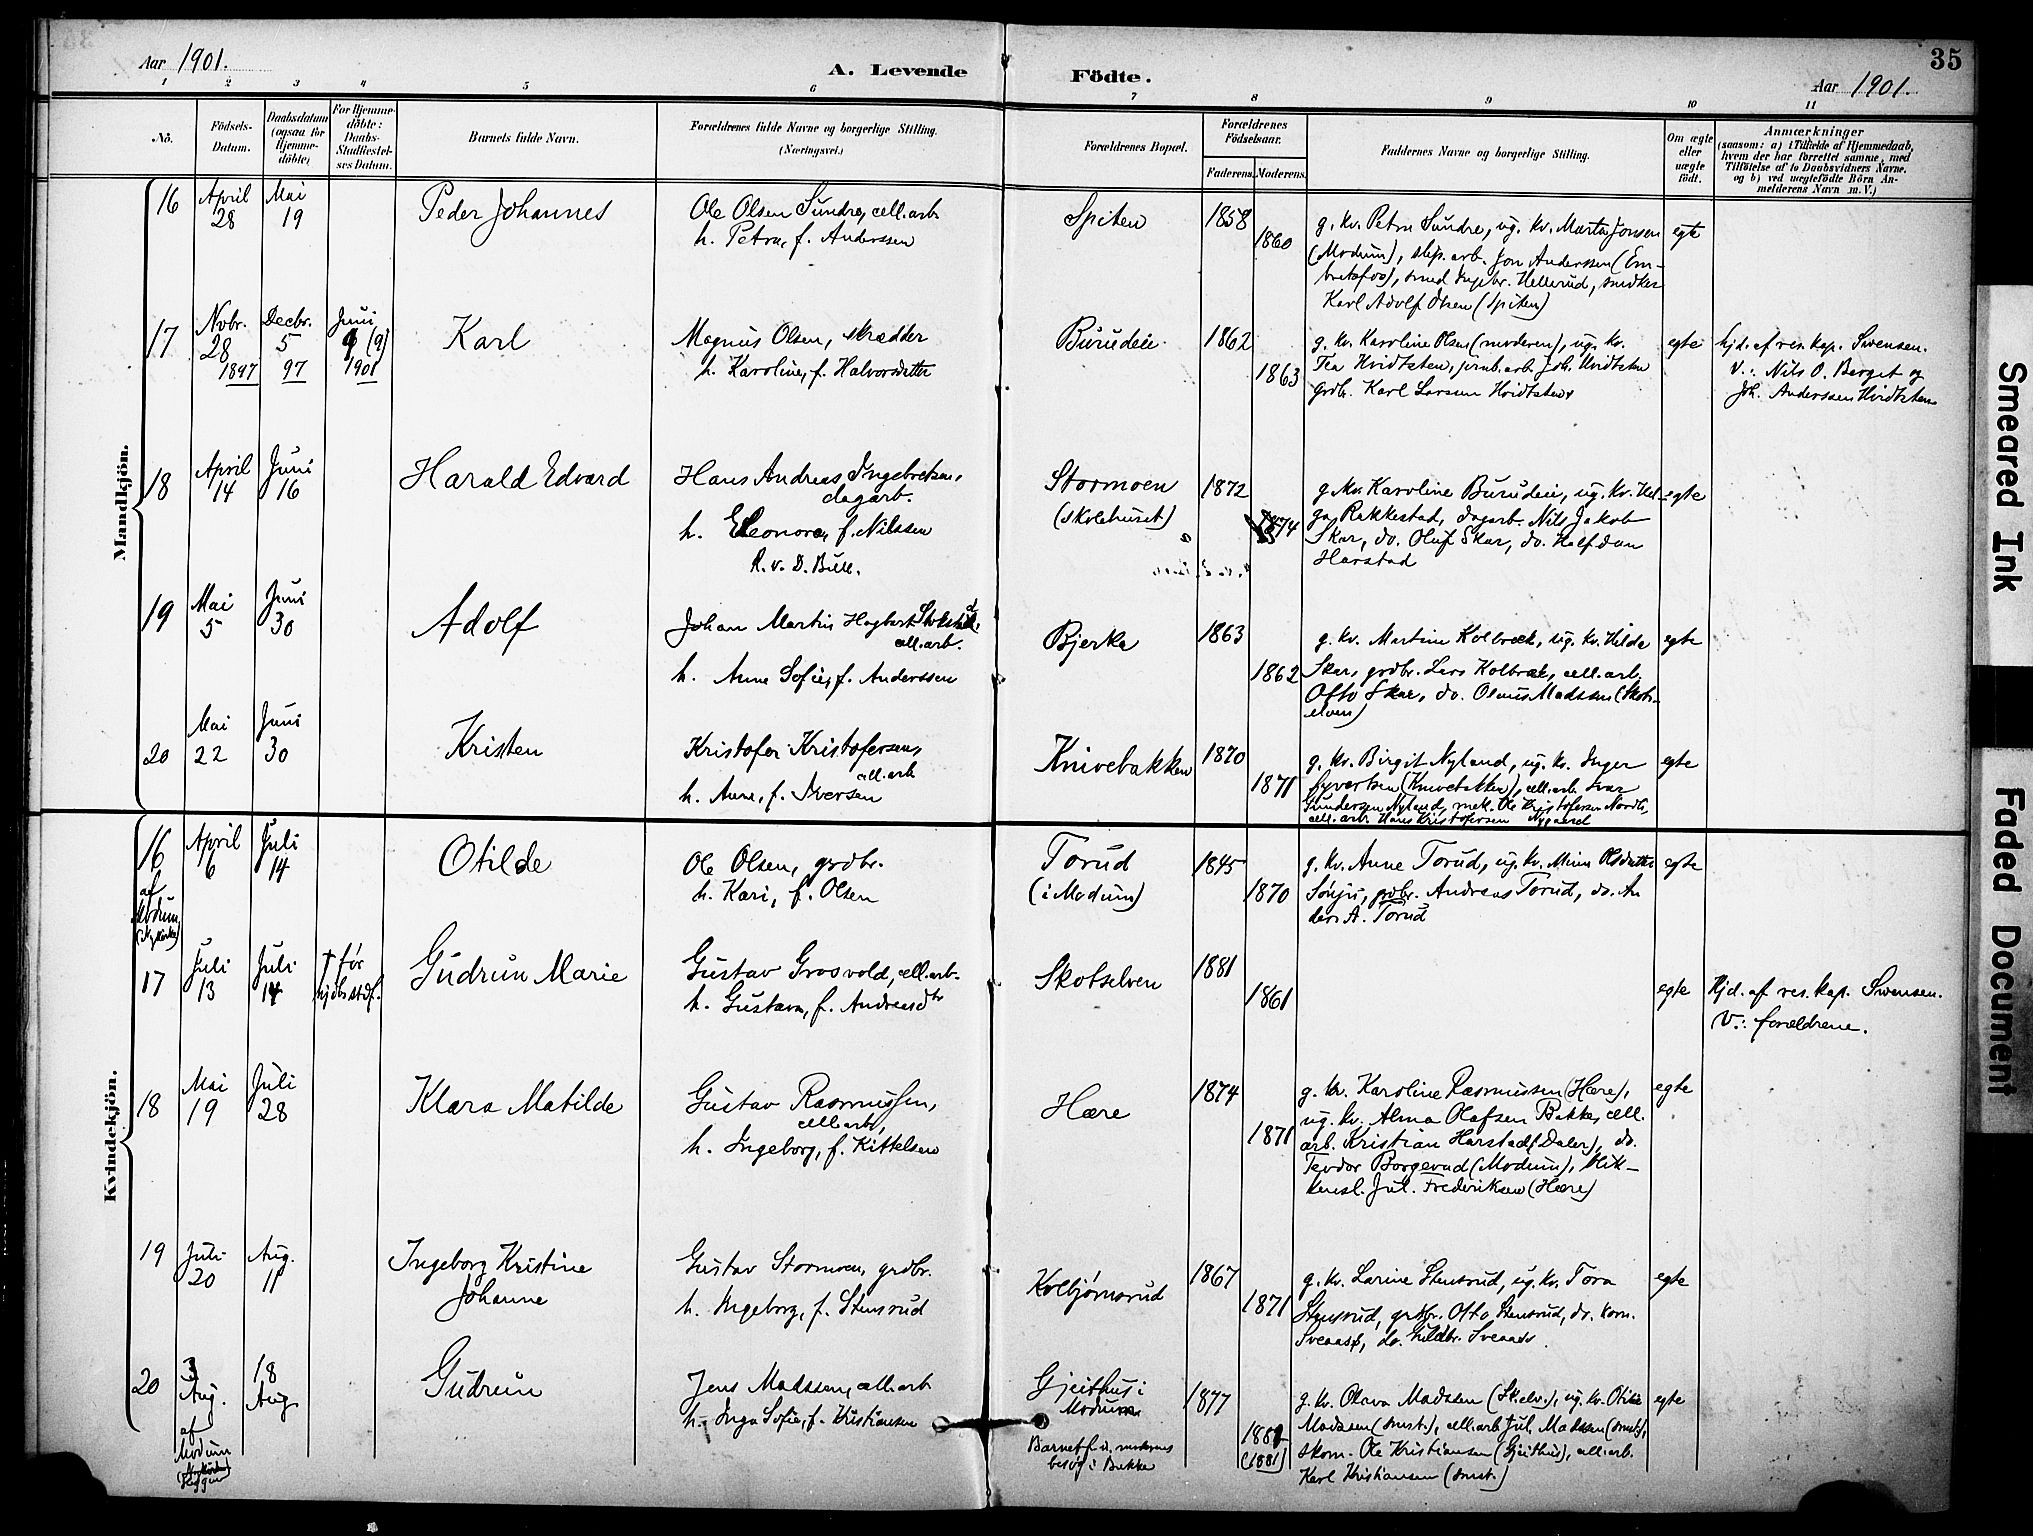 35
Aar 1901.
A. Levende Födte.
Aar 1901.
1 2 3 4 5 6 7 8 9 10 11
No.
Födsels-
Datum.
Daabsdatum
(ogsaa for
Hjemme-
döbte)
For Hjemme-
döbte:
Daabs-
Stadfæstel-
ses Datum.
Barnets fulde Navn.
Forældrenes fulde Navne og borgerlige Stilling.
(Næringsvei.)
Forældrenes Bopæl.
Forældrenes
Födselsaar.
Faderens.
Moderens.
Faddernes Navne og borgerlige Stilling.
Om ægte
eller
uægte
født.
Anmærkninger
(saasom: a) i Tilfælde af Hjemmedaab,
hvem der har forrettet samme, med
Tilføielse af to Daabsvidners Navne.
og b) ved uægtefödte Börn An-
melderens Navn m. V.)
Mandkjön.
16
April
28
Mai
19
Peder Johannes
Ole Olsen Sundre, cell.arb.
h. Petra, f. Anderssen
Spiten
1858
1860
g. kv. Petra Sundre, ug. kv. Marta Jonsen
(Modum), slip. arb. Jon Anderssen (Em-
bretsfos), smed Ingebr. Hellerud, snidker
Karl Adolf Olsen (Spiten)
egte
17
Novbr.
28
1897
Decbr.
5
97
Juni
9 (9)
1901
Karl
Magnus Olsen, skrædder
h. Karoline, f. Halvorsdatter
Burudeie
1862
1863
g. kv. Karoline Olsen (moderen), ug. kv.
Tea Hvidtsten, jernb.arb. Joh. Hvidtsten
grdbr. Karl Larsen Hvidtsten
egte
hjd. af res. kap. Svensen.
V.: Nils O. Berget og
Joh. Anderssen Hvidtsten
18
April
14
Juni
16
Harald Edvard
Hans Andreas Ingebretsen,
dagarb.
h. Eleonore, f. Nilssen
R. v. D. Bull.
Stormoen
(skolehuset)
1872
1874
g. kv. Karoline Burudeie, ug. kv. Hel-
ga Rakkestad, dagarb. Nils Jakob
Skar, do. Oluf Skar, do. Halfdan
Harstad
egte
19
Mai
5
Juni
30
Adolf
Johan Martin Hagbart
cell.arb.
h. Anne Sofie, f. Anderssen
Bjerke
1863
1862
g. kv. Martine Kolbræk, ug. kv. Hilda
Skar, grdbr. Lars Kolbræk, cell. arb.
Otto Skar, do. Olaus Madssen (Skots-
elven)
egte
20
Mai
22
Juni
30
Kristen
Kristofer Kristofersen,
cell.arb
h. Anne, f. Iversen
Knivebakken
1870
1871
g. kv. Birgit Nyland, ug. kv. Inger
Syvertsen (Knivebakken), cell.arb. Ivar
Gundersen Nyland, mek. Ole Kristofersen Nordli,
cell. arb. Hans Kristofersen Nygaard
egte
Kvindekjön.
16
af
Modum
(Nykirke)
April
6
Juli
14
Otilde
Ole Olsen, grdbr.
h. Kari, f. Olsen
Torud
(i Modum)
1845
1870
g. kv. Anne Torud, ug. kv. Mina Olsdatter
Sønju, grdbr. Andreas Torud, do. An
ders A. Torud
egte
17
Juli
13
Juli
14
† før
hjdbstdf.
Gudrun Marie
Gustav Grosvold, cell.arb.
h. Gustava, f. Andreasdtr
Skotselven
1881
1861
egte
Hjd. af res. kap. Svensen.
V.: forældrene.
18
Mai
19
Juli
28
Klara Matilde
Gustav Rasmussen,
cell.arb,
h. Ingeborg, f. Kittelsen
Hære
1874
1871
g. kv. Karoline Rasmussen (Hære),
ug. kv. Alma Olafsen Bakke, cell.
arb. Kristian Harstad (Daler), do.
Teodor Borgerud (Modum), blik-
kensl. Jul. Frederiksen (Hære)
egte
19
Juli
20
Aug.
11
Ingeborg Kristine
Johanne
Gustav Stormoen, grdbr.
h. Ingeborg, f. Stensrud
Kolbjørnsrud
1867
1871
g. kv. Larine Stensrud, ug. kv. Tora
Stensrud, grdbr. Otto Stensrud, do. Korn.
Sveaas, do. Guldbr. Sveaas.
egte
20
3
Aug.
af
Modum
18
Aug
Gudrun
Jens Madssen, cell.arb
h. Inga Sofie, f. Kristiansen
Gjeithus i
Modum
Barnet f. u. moderens
besøg i Bakke
1877
1881
(1881)
g. kv. Olava Madssen (Sk.elv.), ug. kv. Otilie
Madssen (smst.), cell.arb Jul. Madssen (smst.),
skom. Ole Kristiansen (Gjeithus), cell.arb.
Karl Kristiansen (smst.)
egte
Smeared Ink
Faded Document